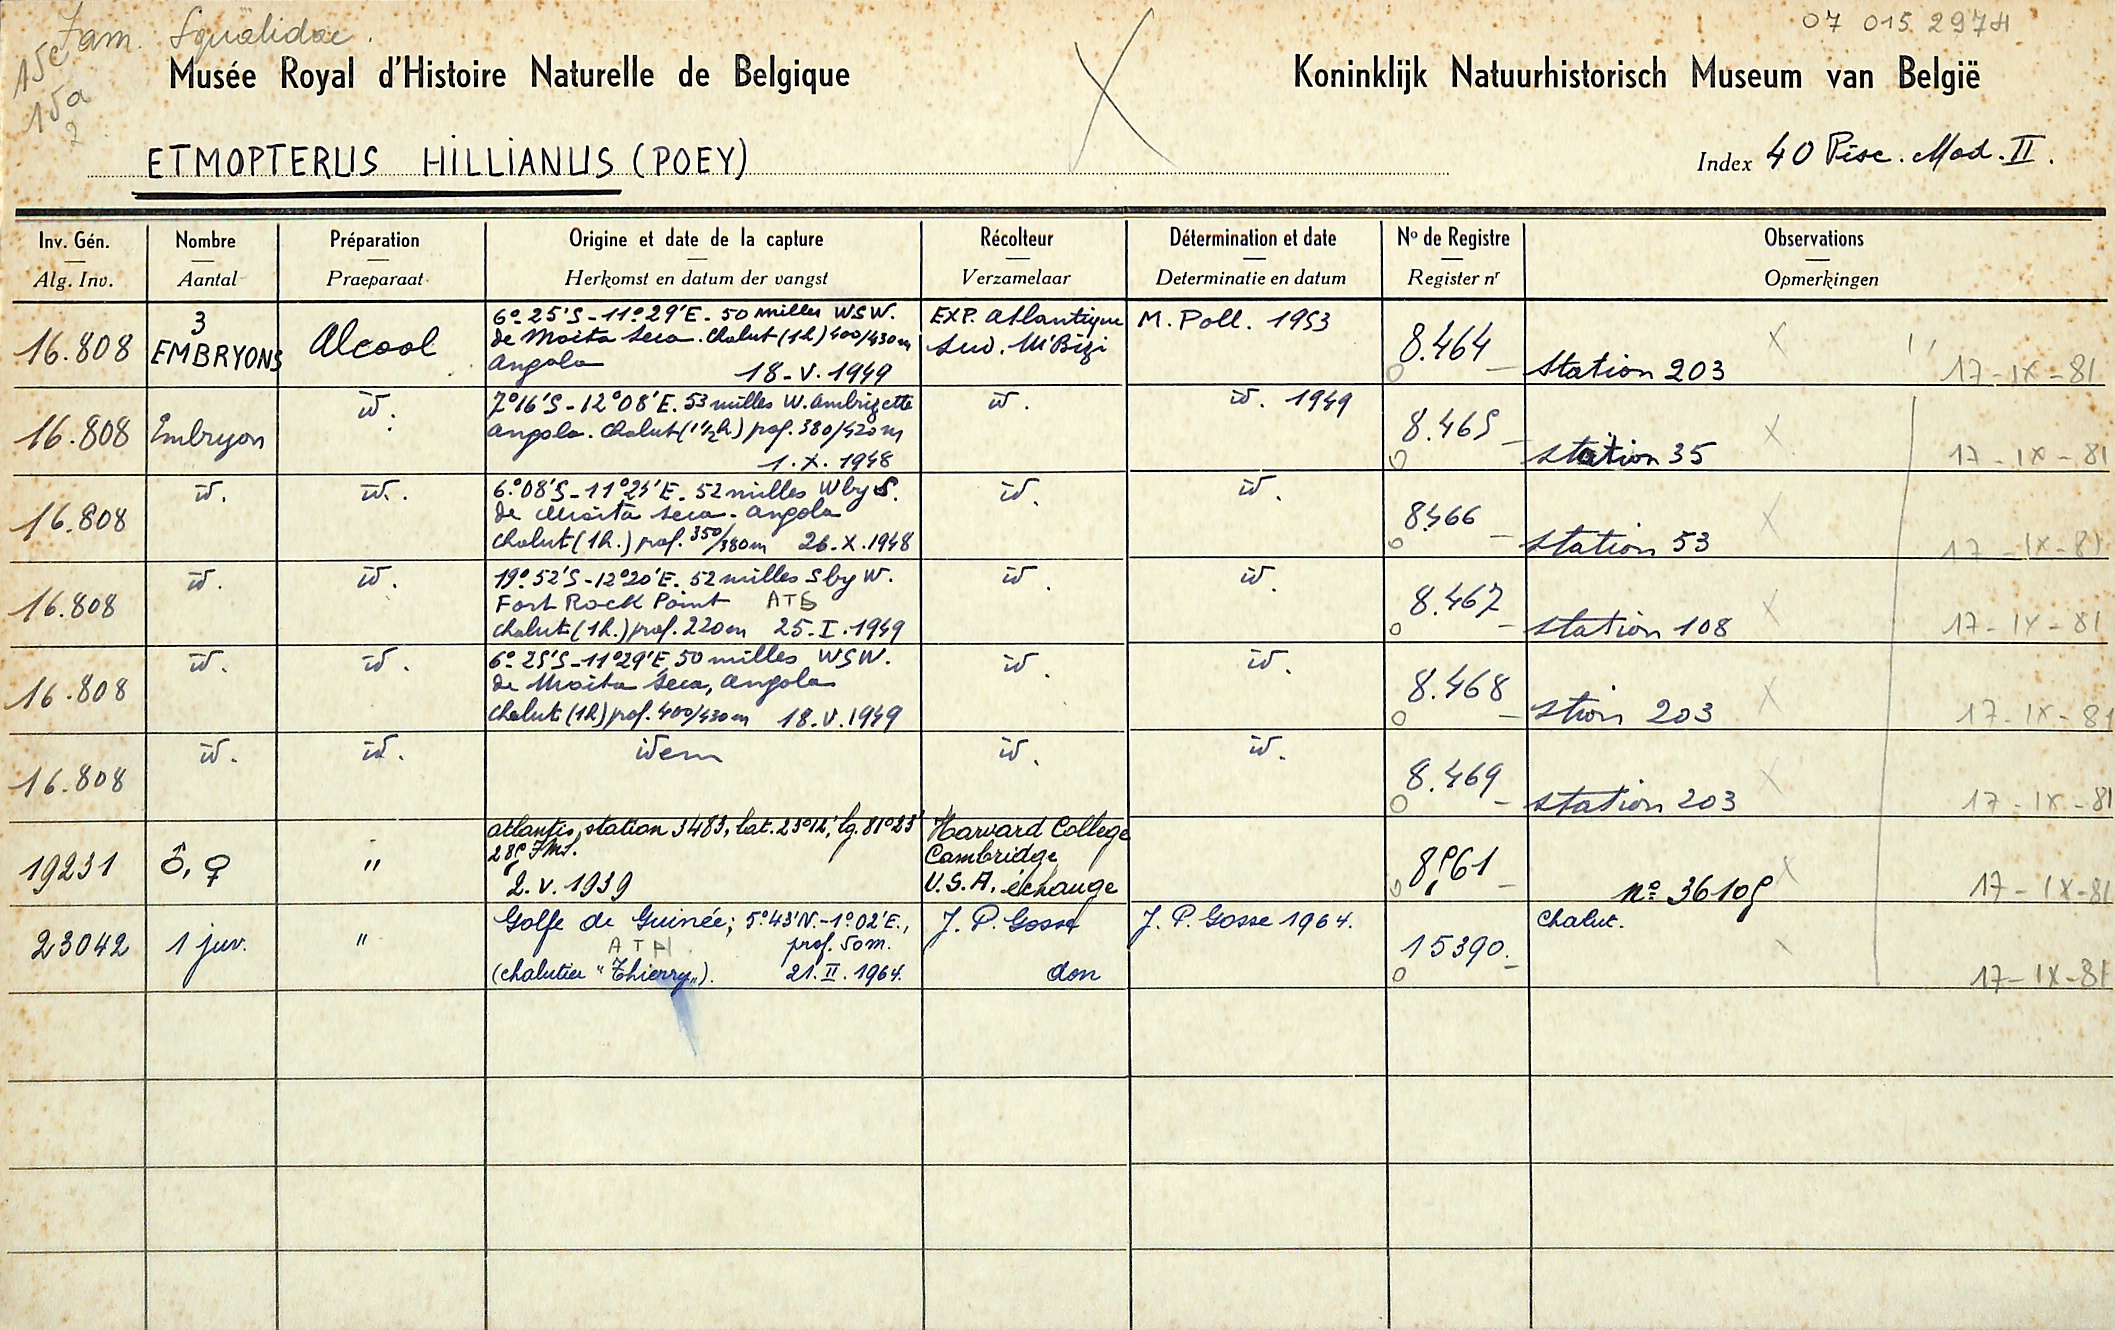 Fam. Squalidae.
07 015 297H
15e
15a
2
Musée Royal d'Histoire Naturelle de Belgique
Koninklijk Natuurhistorisch Museum van België
ETMOPTERUS HILLIANUS (POEY)
Index 40 Pisc. Mod. II.
Inv. Gén. Nombre Préparation Origine et date de la capture Récolteur Détermination et date No de Registre Observations
Alg. Inv. Aantal Praeparaat Herkomst en datum der vangst Verzamelaar Determinatie en datum Register nr Opmerkingen
16.808 3 EMBRYONS Alcool 6° 25'S - 11° 29'E. 50 milles WSW. EXP. Atlantique M. Poll. 1953 8.464 Station 203 X 17-IX-81
de Moita Seca. Chalut (1h) 400/430m Sud. M'Bizi
Angola 18-V.1949
16.808 Embryon id. 7°16'S - 12°08'E. 53 milles W. Ambrizette id. id. 1949 8.465 Station 35 X 17-IX-81
Angola. Chalut (1½h) prof. 380/420m
1.X.1948
16.808 id. id. 6°08'S - 11°25'E. 52 milles W by S. id. id. 8466 Station 53 X 17-IX-81
de Moita Seca. Angola
Chalut (1h.) prof. 350/380m 26.X.1948
16.808 id. id. 19° 52'S - 12°20'E. 52 milles S by W. id. id. 8.467 Station 108 X 17-IX-81
Fort Rock Point ATS
Chalut (1h.) prof. 220m 25-I.1949
16.808 id. id. 6° 25'S - 11°29'E. 50 milles WSW. id. id. 8.468 Stion 203 X 17-IX-81
de Moita Seca, Angola
Chalut (1h) prof. 400/430m 18.V.1949
16.808 id. id. idem id. id. 8.469 Station 203 X 17-IX-81
19231 ♂, ♀ " Atlantis, station 3483, lat. 23°12', lg. 81°23' Harvard College 8561 no 36105 X 17-IX-81
285 FMS. Cambridge
2.V.1939 U.S.A. échange
23042 1 juv. " Golfe de Guinée; 5°43'N.-1°02'E., J. P. Gosse J. P. Gosse 1964. 15390. Chalut. 17-IX-81
ATH prof. 50m.
(chalutier "Thierry"). 21.II.1964. don